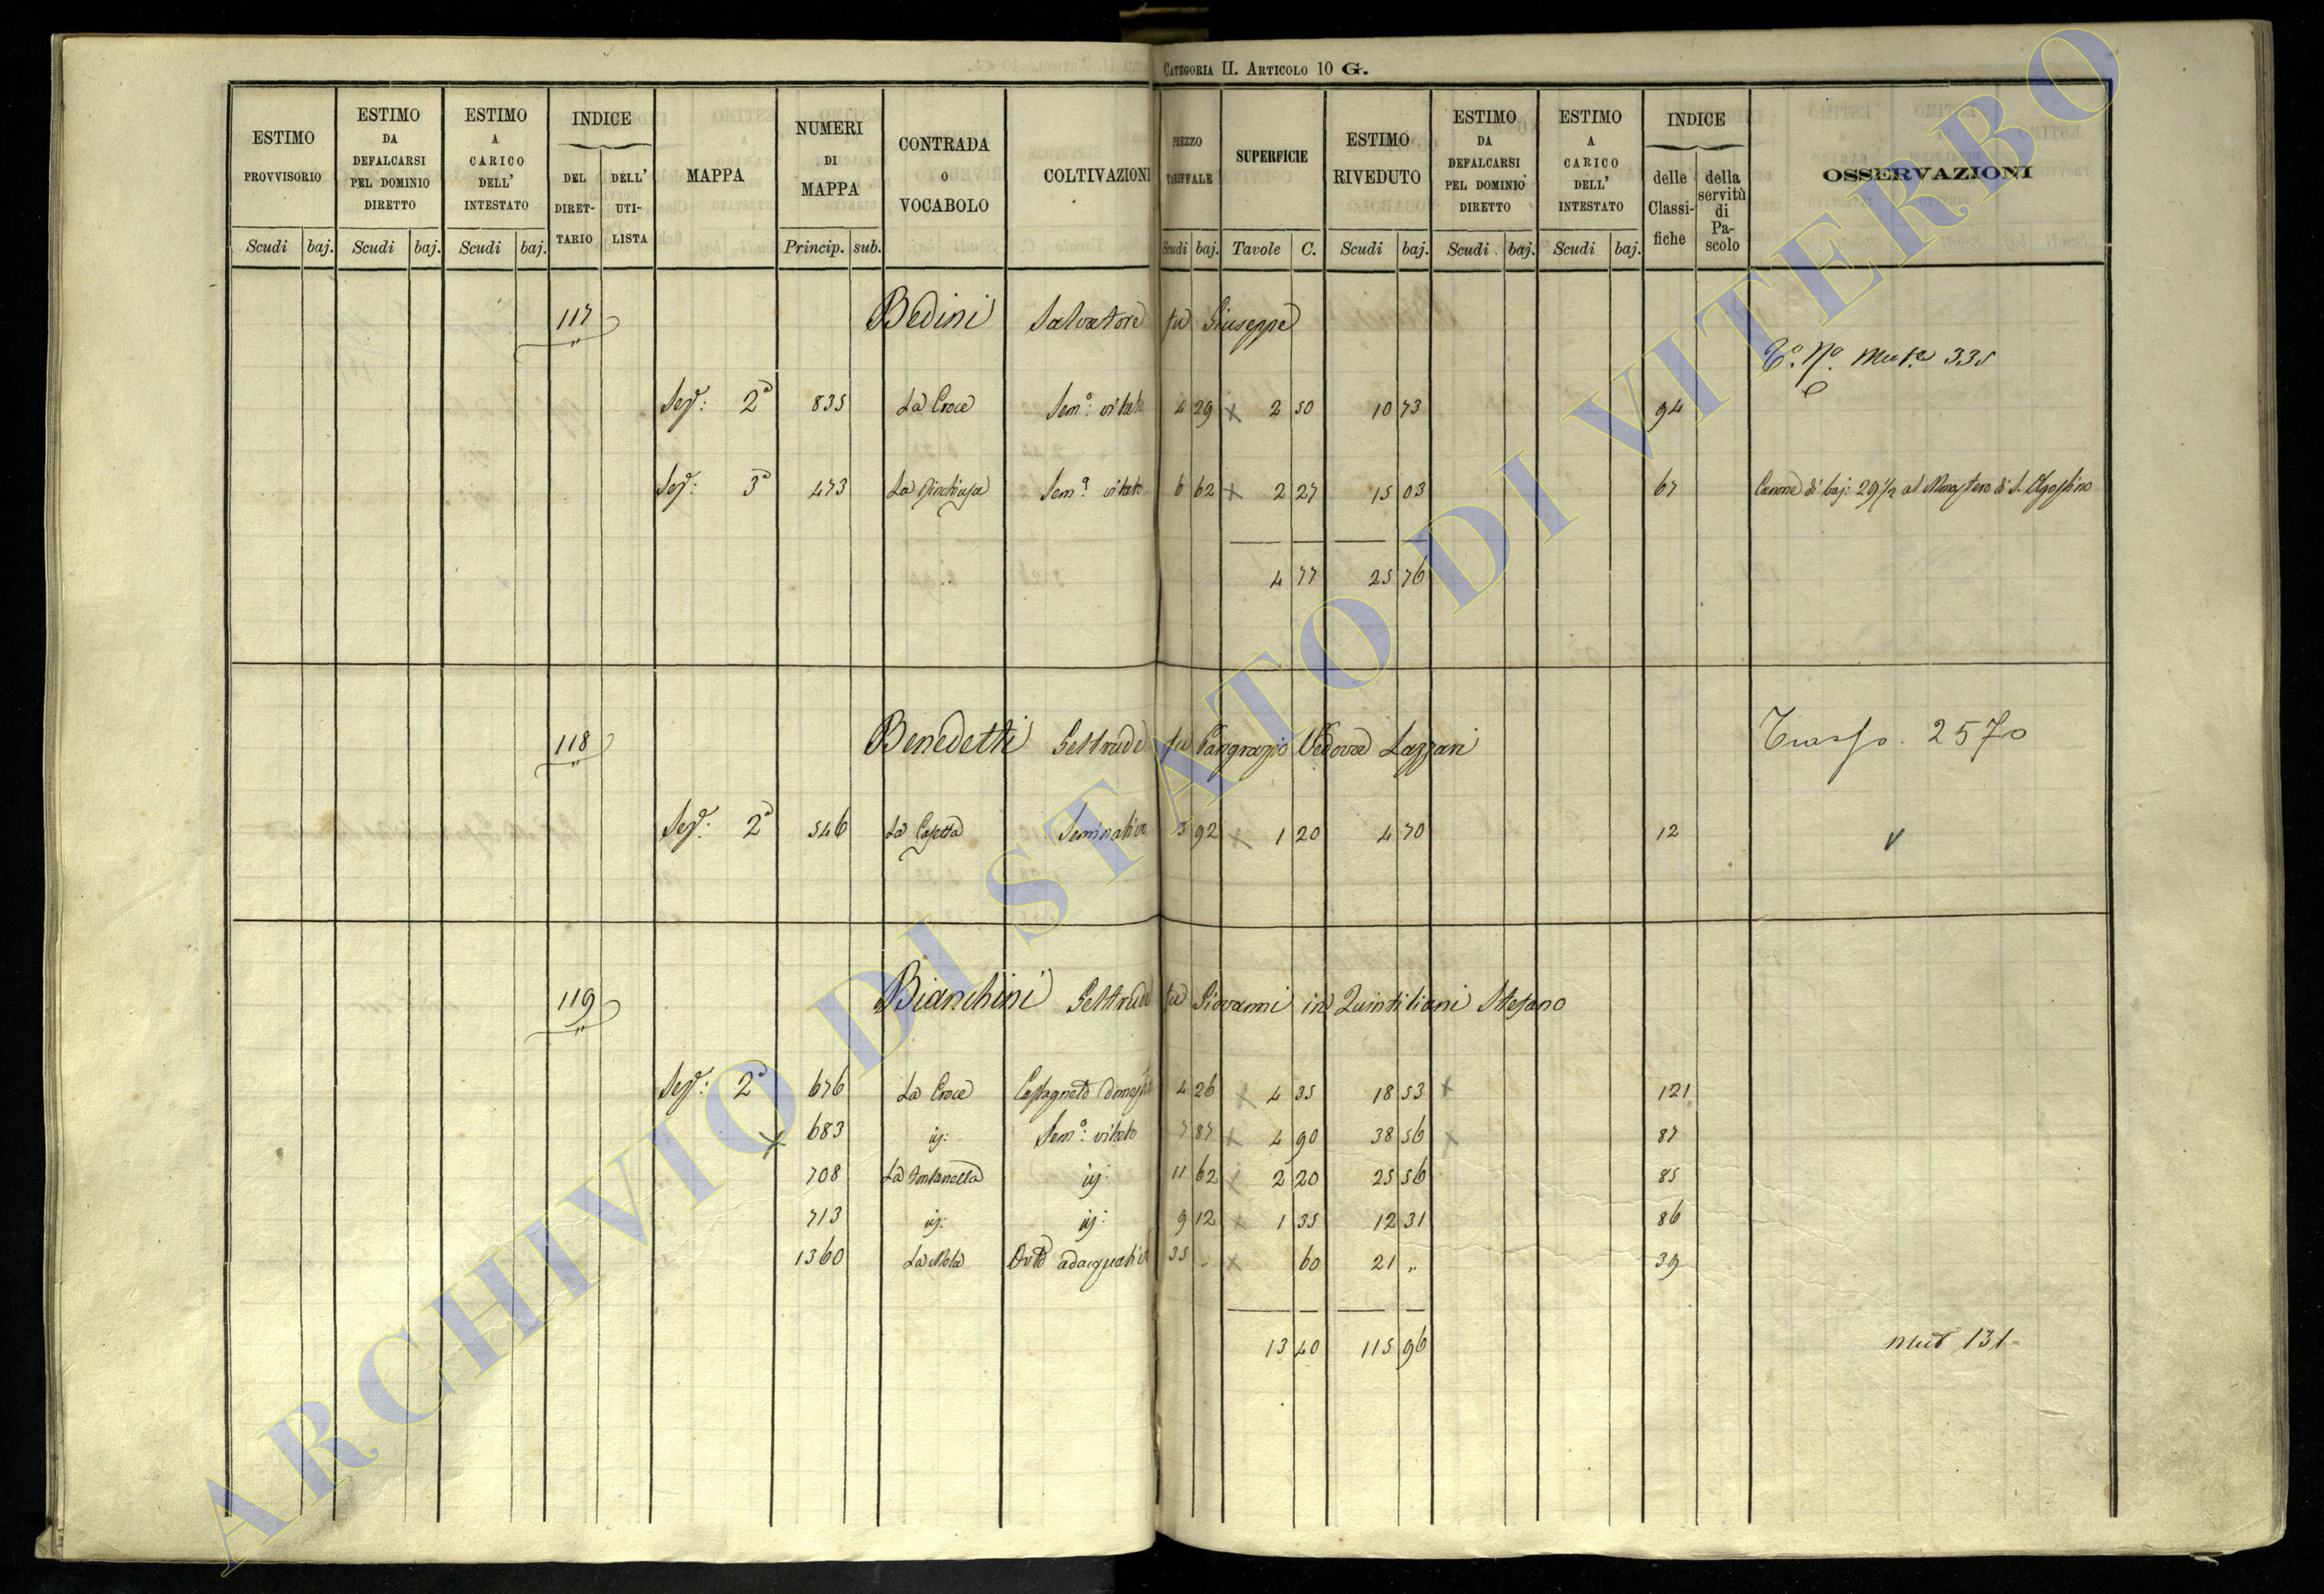 CATEGORIA II. ARTICOLO 10 G.
ESTIMO PROVVISORIO Scudi baj.
ESTIMO DA DEFALCARSI PEL DOMINIO DIRETTO Scudi baj.
ESTIMO A CARICO DELL' INTESTATO Scudi baj.
INDICE DEL DIRET-TARIO DELL' UTI-LISTA
MAPPA
NUMERI DI MAPPA Princip. sub.
CONTRADA O VOCABOLO
COLTIVAZIONI
PREZZO TARIFFALE Scudi baj.
SUPERFICIE Tavole C.
ESTIMO RIVEDUTO Scudi baj.
ESTIMO DA DEFALCARSI PEL DOMINIO DIRETTO Scudi baj.
ESTIMO A CARICO DELL' INTESTATO Scudi baj.
INDICE delle Classi-fiche della servitù di Pa-scolo
OSSERVAZIONI
117 Bedini Salvatore fu Giuseppe
335
Sez: 2ª 835 La Croce Sem: vitato 4 29 x 2 50 10 73 94
Sez: 3ª 473 La Rinchiusa Sem: vitato 6 62 x 2 27 15 03 67 Canone di baj: 29 1/2 al Monastero di S. Agostino
4 77 25 76
118 Benedetti Geltrude fu Pangrazio Vedova Lazzari Trasp. 2570
Sez: 2ª 546 La Casetta Seminativo 3 92 x 1 20 4 70 12
119 Bianchini Geltrude fu Giovanni in Quintiliani Stefano
Sez: 2ª 676 La Croce Castagneto domest 4 26 x 4 35 18 53 x 121
x 683 id: Sem: vitato 7 87 x 4 90 38 56 x 87
708 La Fontanella id: 11 62 x 2 20 25 56 85
713 id: id: 9 12 x 1 35 12 31 86
1360 La Mola Orto adacquativo 35 „ x 60 21 „ 39
13 40 115 96 mut 131=
ARCHIVIO DI STATO DI VITERBO